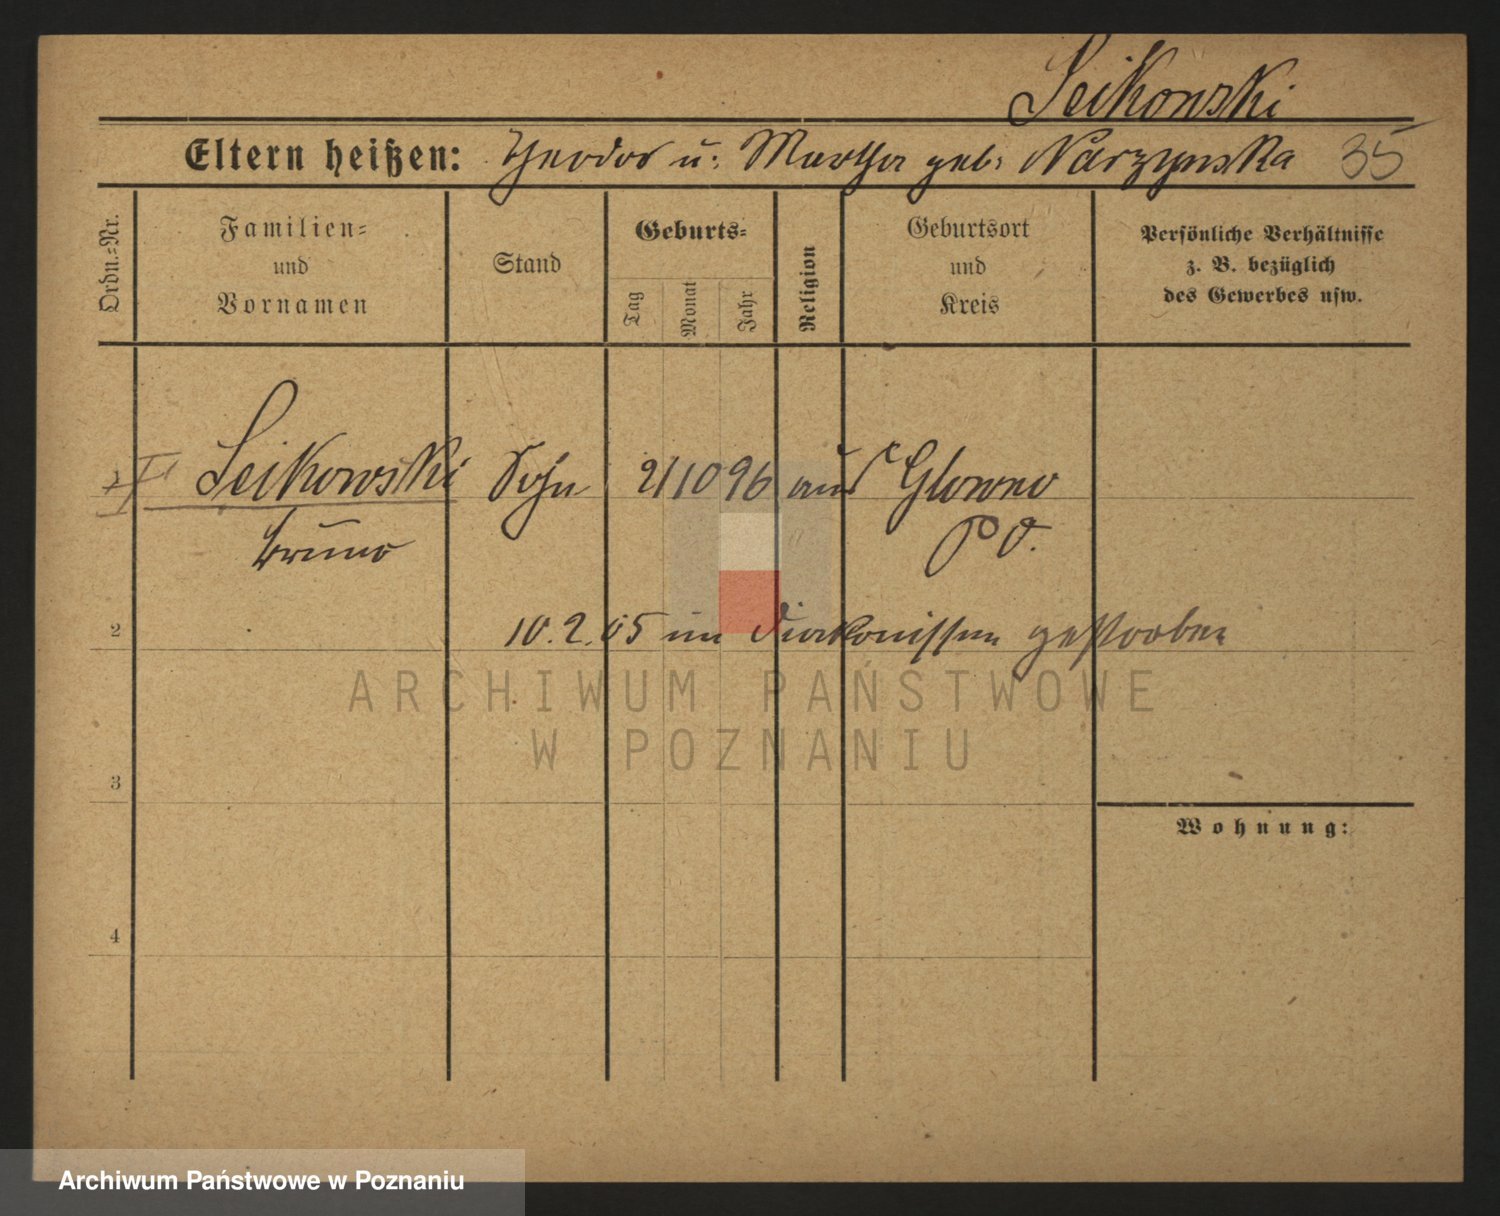 Seikowski
Eltern heißen: Theodor u. Martha geb. Narzynska 35
Ordn.-Nr.
Familien-
und
Vornamen
Stand
Geburts-
Tag
Monat
Jahr
Religion
Geburtsort
und
Kreis
Persönliche Verhältnisse
z. B. bezüglich
des Gewerbes usw.
Seikowski Sohn 2/10 96 aus Glowno
Bruno P. O.
2
10.2.05 im Diakonissen gestorben
ARCHIWUM PAŃSTWOWE
W POZNANIU
3
Wohnung:
4
Archiwum Państwowe w Poznaniu